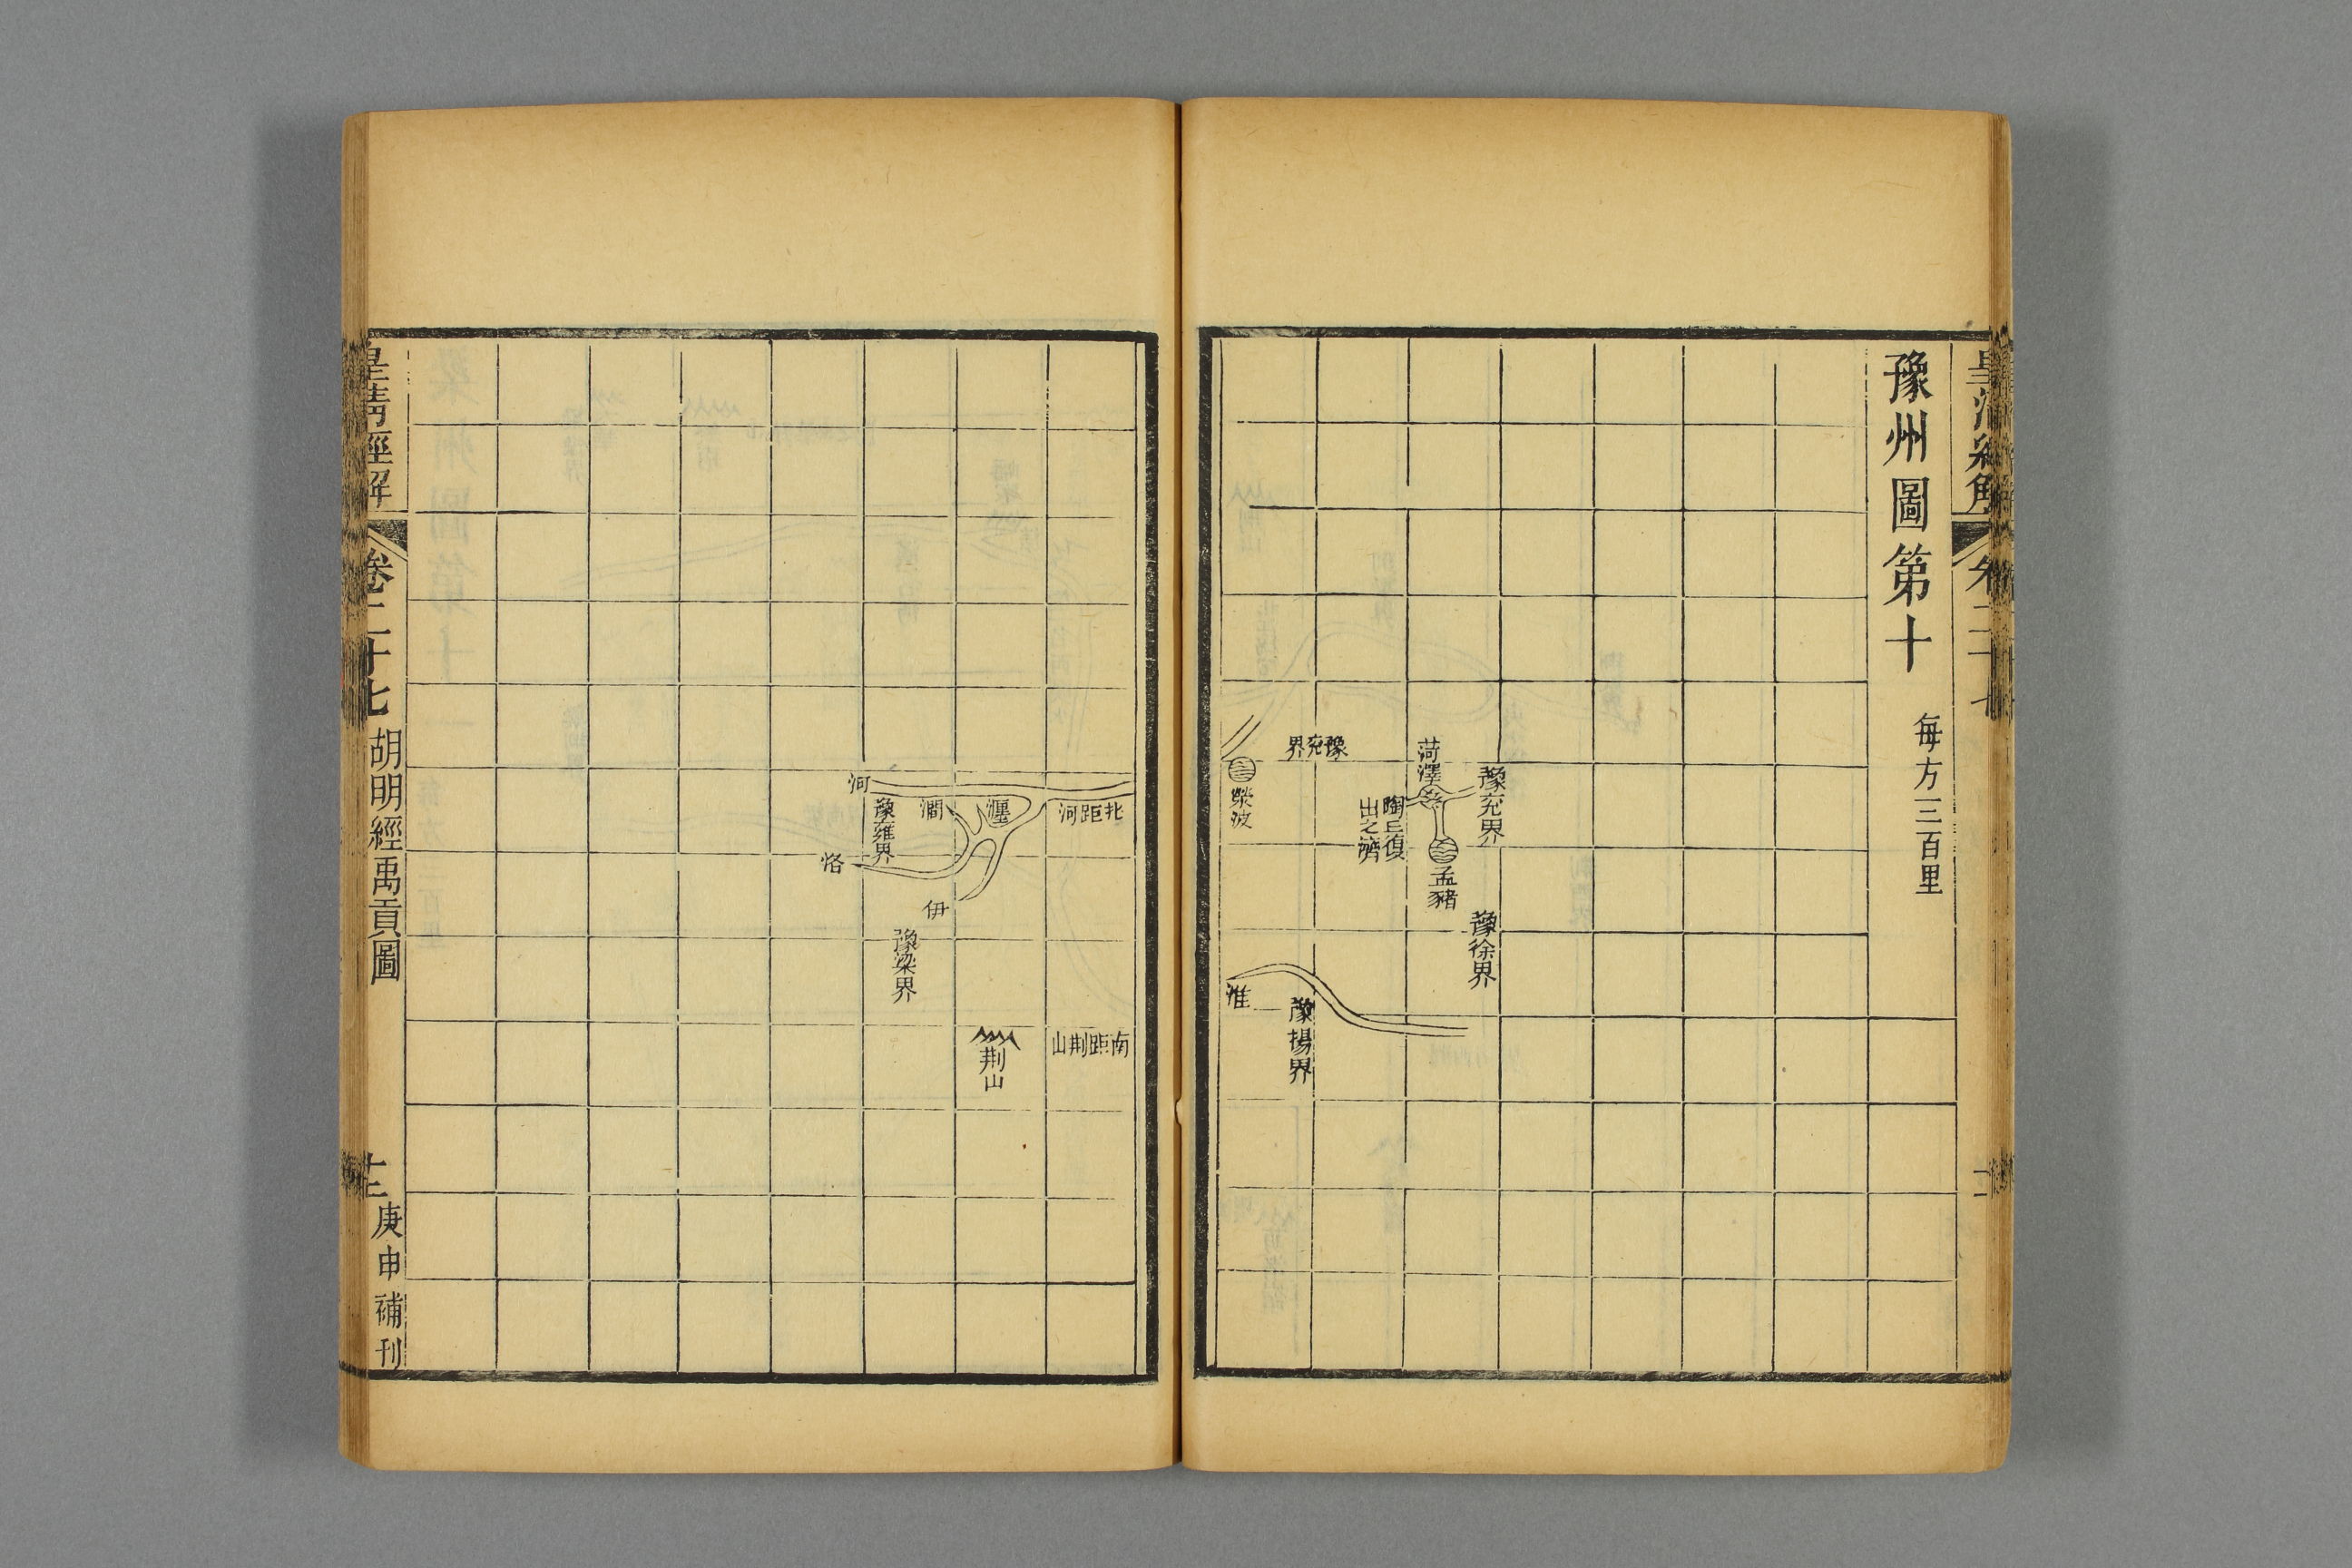 皇清經解
卷二十七
豫州圖第十
每方三百里
豫兗界
豫徐界
菏澤
孟豬
陶丘復
出之濟
豫兗界
豫揚界
滎波
淮
北距河
南距荆山
瀍
荆山
澗
伊
豫梁界
豫雍界
河
洛
皇清經解
卷二十七
胡明經禹貢圖
庚申補刊